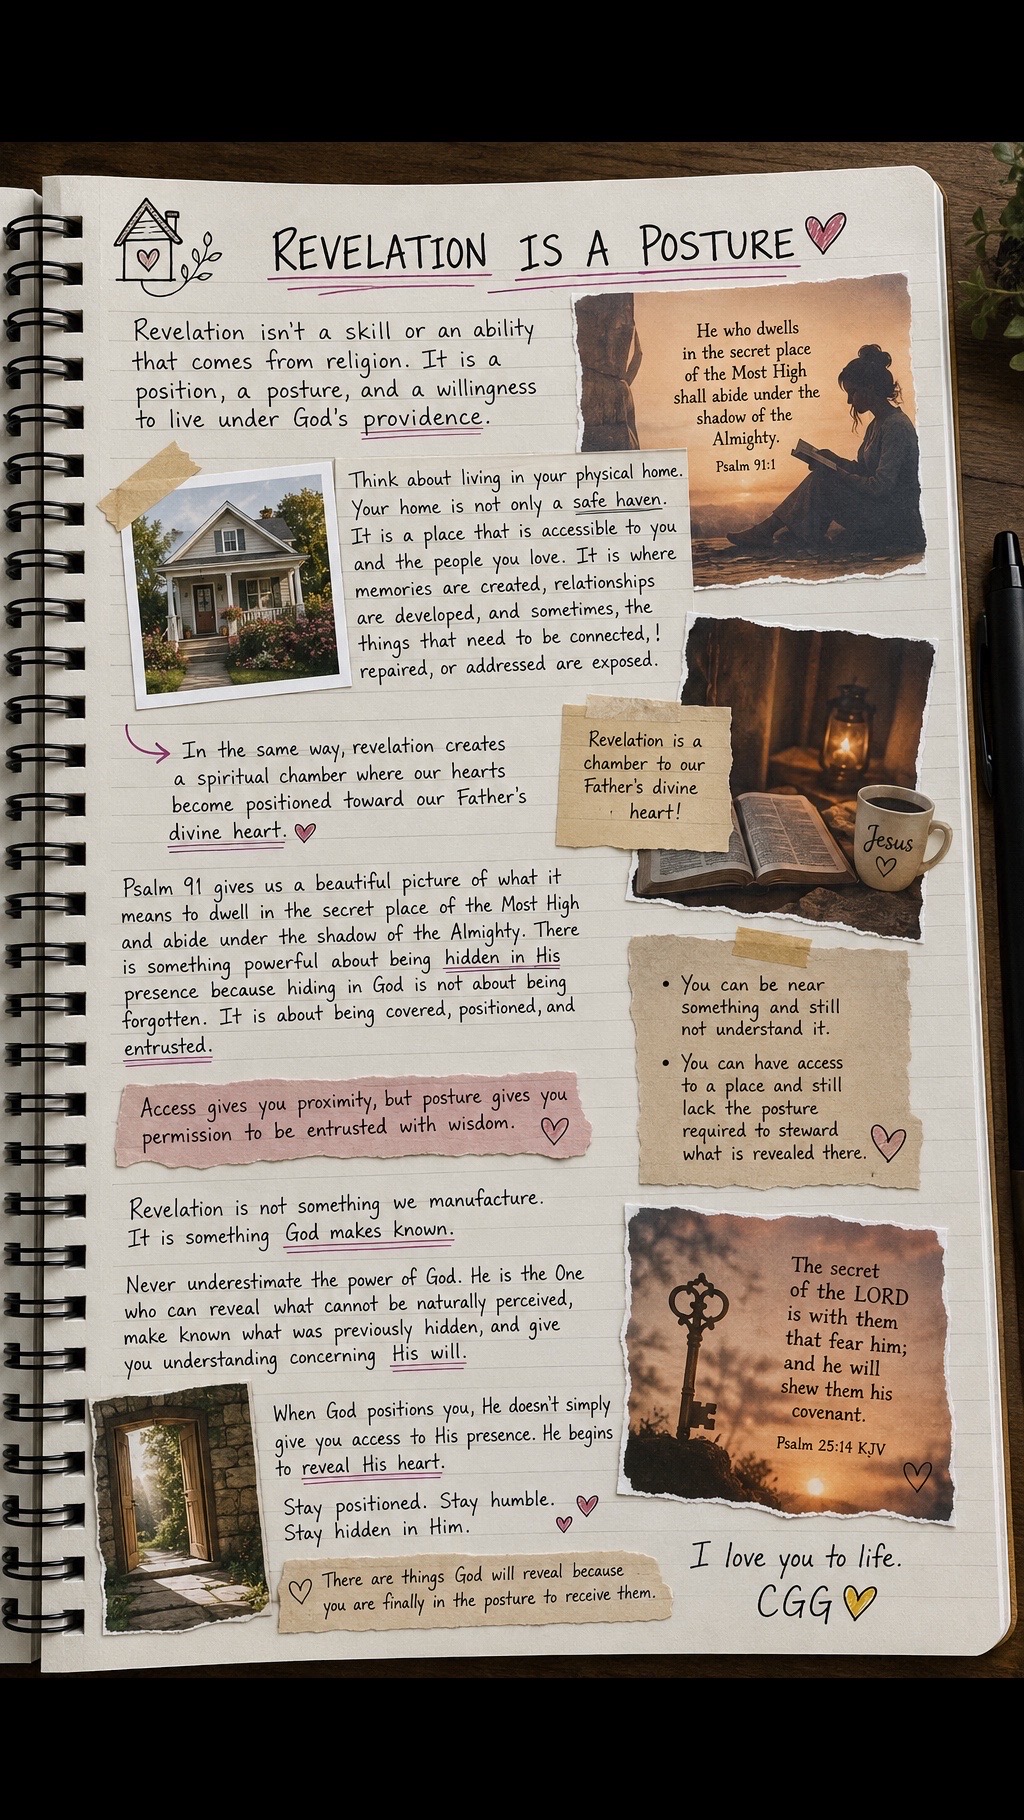 REVELATION IS A POSTURE
Revelation isn't a skill or an ability
that comes from religion. It is a
position, a posture, and a willingness
to live under God's providence.
He who dwells
in the secret place
of the Most High
shall abide under the
shadow of the
Almighty.
Psalm 91:1
Think about living in your physical home.
Your home is not only a safe haven.
It is a place that is accessible to you
and the people you love. It is where
memories are created, relationships
are developed, and sometimes, the
things that need to be connected, !
repaired, or addressed are exposed.
In the same way, revelation creates
a spiritual chamber where our hearts
become positioned toward our Father's
divine heart.
Revelation is a
chamber to our
Father's divine
heart!
Jesus
Psalm 91 gives us a beautiful picture of what it
means to dwell in the secret place of the Most High
and abide under the shadow of the Almighty. There
is something powerful about being hidden in His
presence because hiding in God is not about being
forgotten. It is about being covered, positioned, and
entrusted.
• You can be near
something and still
not understand it.
• You can have access
to a place and still
lack the posture
required to steward
what is revealed there.
Access gives you proximity, but posture gives you
permission to be entrusted with wisdom.
Revelation is not something we manufacture.
It is something God makes known.
Never underestimate the power of God. He is the One
who can reveal what cannot be naturally perceived,
make known what was previously hidden, and give
you understanding concerning His will.
The secret
of the LORD
is with them
that fear him;
and he will
shew them his
covenant.
Psalm 25:14 KJV
When God positions you, He doesn't simply
give you access to His presence. He begins
to reveal His heart.
Stay positioned. Stay humble.
Stay hidden in Him.
There are things God will reveal because
you are finally in the posture to receive them.
I love you to life.
CGG